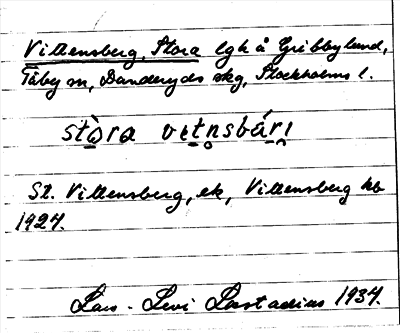 Vittensberg, Stora lgh å Gribbylund,
Täby sn, Danderyds skg, Stockholms l.
stòra vɩtnsbárɩ
St. Vittensberg, ek, Vittensberg hb
1924.
Lars-Levi Læstadius 1934.